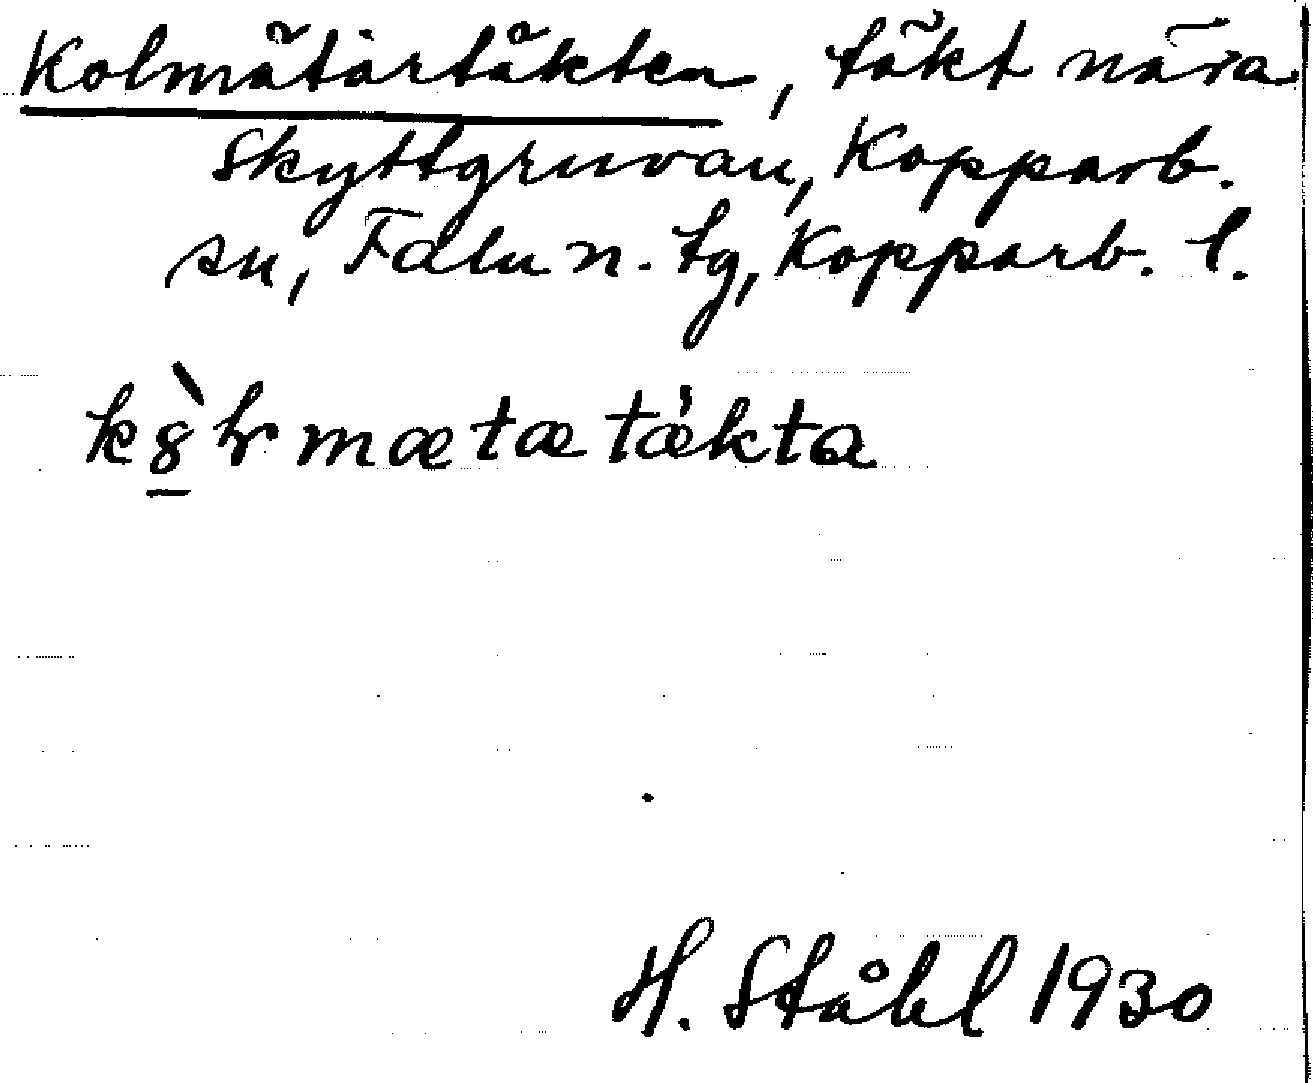 Kolmätärtäkten, täkt nära
Skyttgruvan, Kopparb.
sn, Falu n. tg, Kopparb. l.
H. Ståhl 1930